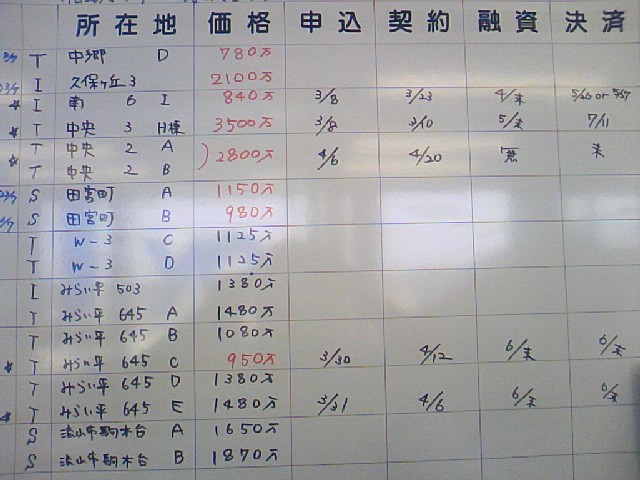 所在地 価格 申込 契約 融資 決済
T 中郷 D 780万
I 久保ヶ丘3 2100万
★ I 南 6 I 840万 3/8 3/23 4/末 5/26 or 5/27
★ T 中央 3 H棟 3500万 3/8 3/10 5/末 7/11
★ T 中央 2 A
T 中央 2 B ) 2800万 4/6 4/20 無 末
S 田宮町 A 1150万
S 田宮町 B 980万
T W-3 C 1125万
T W-3 D 1125万
I みらい平 503 1380万
T みらい平 645 A 1480万
T みらい平 645 B 1080万
★ T みらい平 645 C 950万 3/30 4/12 6/末 6/末
T みらい平 645 D 1380万
★ T みらい平 645 E 1480万 3/31 4/6 6/末 6/末
S 流山市駒木台 A 1650万
S 流山市駒木台 B 1870万